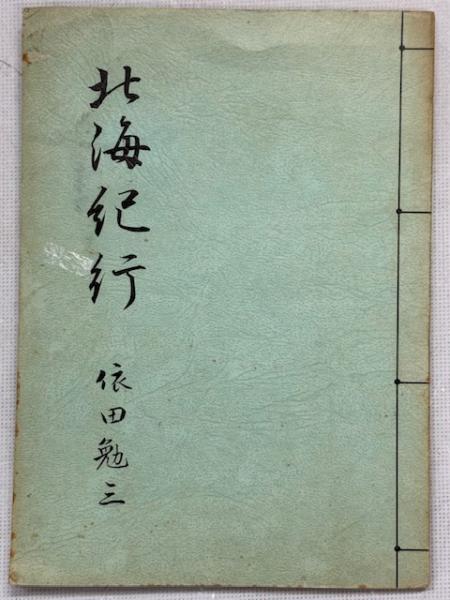 北海紀行
依田勉三